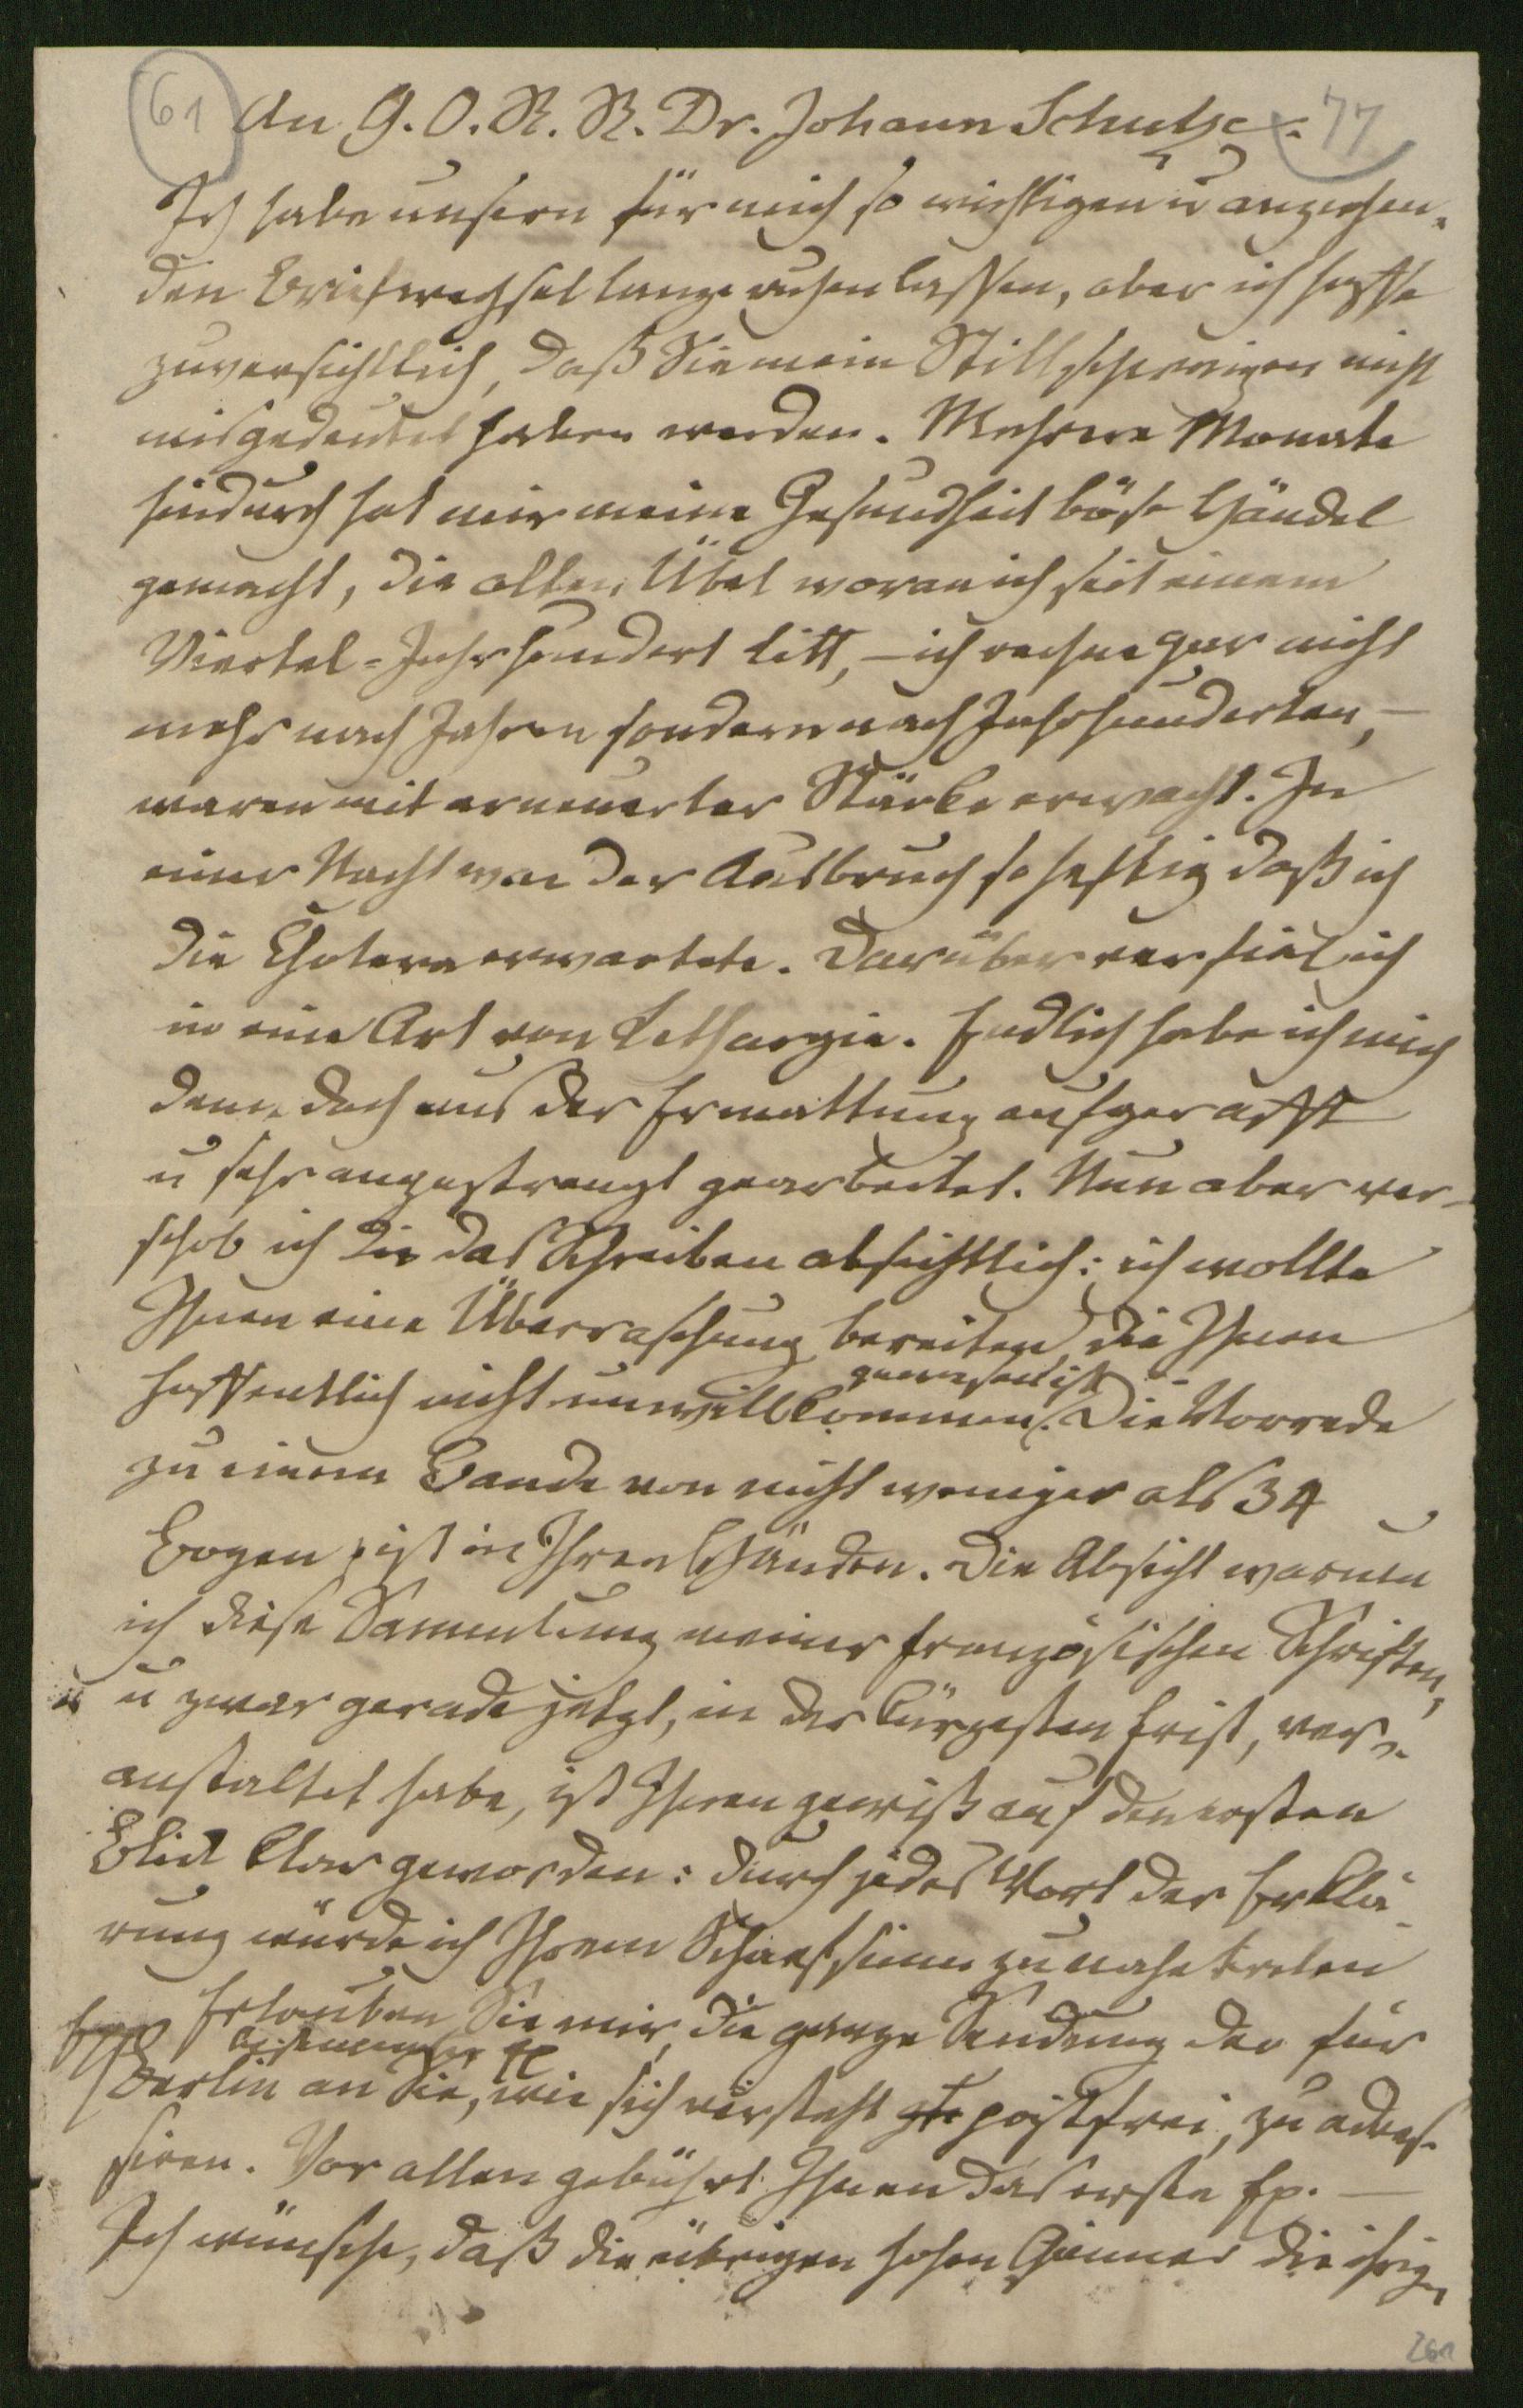 61 An G. O. R. R. Dr. Johann Schulze. 77
Ich habe unsern für mich so wichtigen u anziehen-
den Briefwechsel lange ruhen lassen, aber ich hoffe
zuversichtlich, daß Sie mein Stillschweigen nicht
misgedeutet haben werden. Mehrere Monate
hindurch hat mir meine Gesundheit böse Händel
gemacht, die alten Übel woran ich seit einem
Viertel-Jahrhundert litt, – ich rechne gar nicht
mehr nach Jahren sondern nach Jahrhunderten, –
waren mit erneuerter Stärke erwacht. In
einer Nacht war der Ausbruch so heftig daß ich
die Cholera erwartete. Darüber verfiel ich
in eine Art von Lethargie. Endlich habe ich mich
denn doch aus der Ermattung aufgerafft
u sehr angestrengt gearbeitet. Nun aber ver-
schob ich die das Schreiben absichtlich: ich wollte
Ihnen eine Überraschung bereiten, die Ihnen
gewesen ist
hoffentlich nicht unwillkommen. Die Vorrede
zu einem Bande von nicht weniger als 34
Bogen ist in Ihren Händen. Die Absicht warum
ich diese Sammlung meiner französischen Schriften,
u zwar gerade jetzt, in der kürzesten Frist, ver-
anstaltet habe, ist Ihnen gewiß auf den ersten
Blick klar geworden: durch jedes Wort der Erklä-
rung würde ich Ihrem Scharfsinn zu nahe treten
Erlauben Sie mir, die ganze Sendung der für
bestimmten
Berlin an Sie, wie sich versteht postfrei, zu adres-
siren. Vor allen gebührt Ihnen das erste Ex. –
Ich wünsche, daß die übrigen hohen Gönner die ihrigen
261